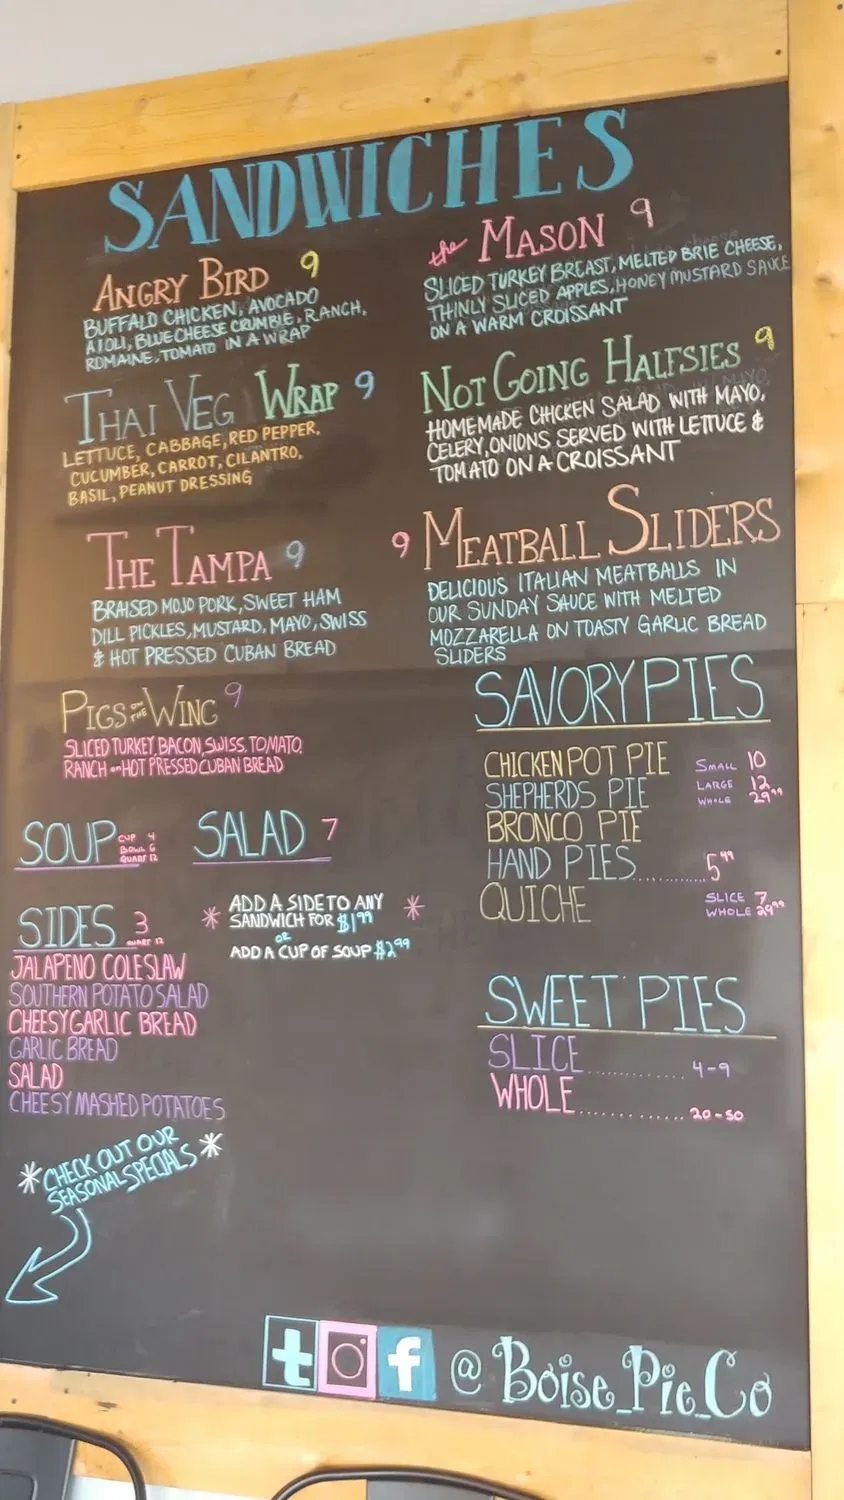 SANDWICHES
ANGRY BIRD 9
BUFFALO CHICKEN, AVOCADO
AIOLI, BLUE CHEESE CRUMBLE, RANCH,
ROMAINE, TOMATO IN A WRAP
THAI VEG WRAP 9
LETTUCE, CABBAGE, RED PEPPER,
CUCUMBER, CARROT, CILANTRO,
BASIL, PEANUT DRESSING
THE TAMPA 9
BRAISED MOJO PORK, SWEET HAM
DILL PICKLES, MUSTARD, MAYO, SWISS
& HOT PRESSED CUBAN BREAD
PIGS ON THE WING 9
SLICED TURKEY, BACON, SWISS, TOMATO,
RANCH on HOT PRESSED CUBAN BREAD
the MASON 9
SLICED TURKEY BREAST, MELTED BRIE CHEESE,
THINLY SLICED APPLES, HONEY MUSTARD SAUCE
ON A WARM CROISSANT
NOT GOING HALFSIES 9
HOMEMADE CHICKEN SALAD WITH MAYO,
CELERY, ONIONS SERVED WITH LETTUCE &
TOMATO ON A CROISSANT
9 MEATBALL SLIDERS
DELICIOUS ITALIAN MEATBALLS IN
OUR SUNDAY SAUCE WITH MELTED
MOZZARELLA ON TOASTY GARLIC BREAD
SLIDERS
SOUP
CUP 4
BOWL 6
QUART 12
SALAD 7
SIDES 3
QUART 12
JALAPENO COLESLAW
SOUTHERN POTATO SALAD
CHEESY GARLIC BREAD
GARLIC BREAD
SALAD
CHEESY MASHED POTATOES
* ADD A SIDE TO ANY *
SANDWICH FOR $1.99
OR
ADD A CUP OF SOUP $2.99
*CHECK OUT OUR *
SEASONAL SPECIALS
SAVORY PIES
CHICKEN POT PIE SMALL 10
SHEPHERDS PIE LARGE 12
WHOLE 29.99
BRONCO PIE
HAND PIES............5.49
QUICHE SLICE 7
WHOLE 29.99
SWEET PIES
SLICE............4-9
WHOLE............20-50
t f @ Boise_Pie_Co